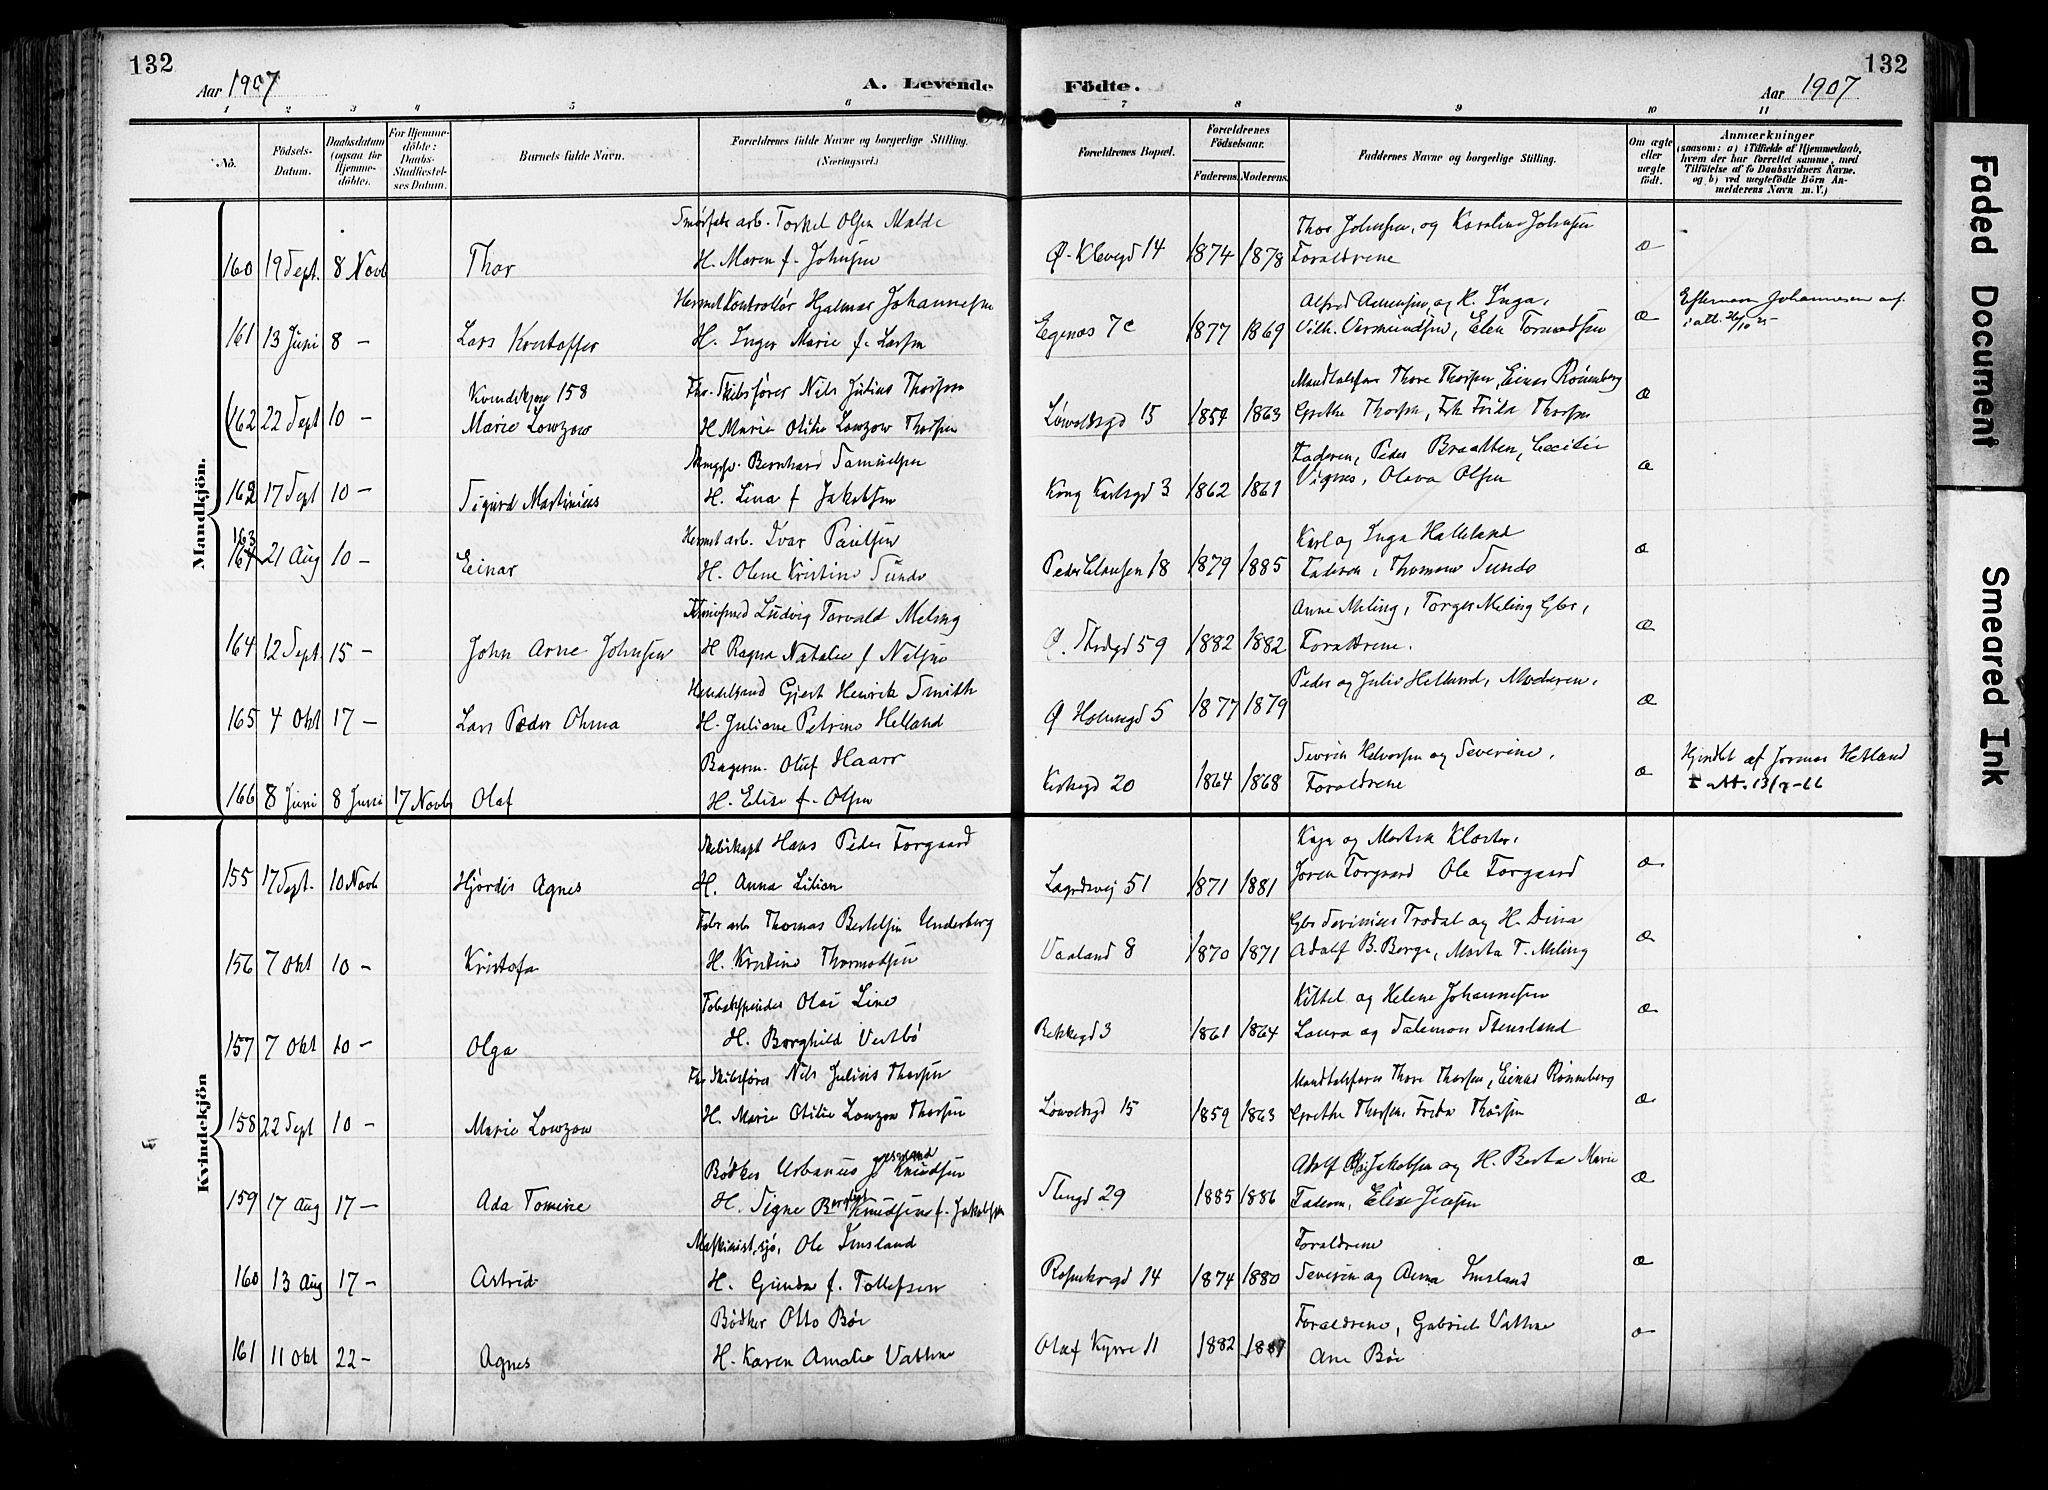 132
Aar 1907
A. Levende Födte.
Aar 1907
132
1 2 3 4 5 6 7 8 9 10 11
No.
Födsels-Datum.
Daabsdatum (ogsaa for Hjemme-döbte).
For Hjemme-döbte: Daabs-Stadfæstelses Datum.
Barnets fulde Navn.
Forældrenes fulde Navne og borgerlige Stilling. (Næringsvei.)
Forældrenes Bopæl.
Forældrenes Födselsaar.
Faderens. Moderens.
Faddernes Navne og borgerlige Stilling.
Om ægte eller uægte födt.
Anmærkninger
(saasom: a) i Tilfælde af Hjemmedaab, hvem der har forrettet samme, med Tilföielse af to Daabsvidners Navne. og b) ved uægtefödte Börn Anmelderens Navn m. V.)
Mandkjön.
Smörfabr arb. Torkel Olsen Malde Thor Johnsen, og Karoline Johnsen
160 19 Sept. 8 Novb Thor H. Maren f. Johnsen Ø. Klevegd 14 1874 1878 Forældrene æ
Hermet Kontrollör Hjalmar Johannesen
161 13 Juni 8 – Lars Kristoffer H. Inger Marie f. Larsen Egenæs 7c 1877 1869 Vilh. Vermundsen, Elen Tormodsen æ Efternavn Johannesen
Kvindekjøn 158 Skibsfører Nils Julius Thorsen Mandtalsfører Thore Thorsen, Einar Rönneberg
162 22 Sept 10 – Marie Lowzow H Marie Otilie Lowzow Thorsen Lövoldsgd 15 1859 1863 Grethe Thorsen, Frk Frida Thorsen æ
Bernhard Samuelsen Faderen, Peder Braatten, Cecilie
162 17 Sept 10 – Sigurd Martinius H. Lina f Jakobsen Kong Karlsgd 3 1862 1861 Vignes, Olava Olsen æ
Hermet arb. Ivar Paulsen Karl og Inga Halleland
163 21 Aug 10 – Einar H. Olene Kristine Sunde Peder Clausen 18 1879 1885 Faderen, Thomine Sunde æ
Ludvig Torvald Meling Anne Meling, Torger Meling Gbr,
164 12 Sept 15 – John Arne Johnsen H Ragna Natalie f Nilsen Ø. Strdgd 59 1882 1882 Forældrene. æ
Handelsmand Gjert Henrik Smith Peder og Julie Helland, Moderen,
165 4 Okt 17 – Lars Peder Ohma H. Juliane Petrine Helland Ø Holmegd 5 1877 1879 æ
Bagerm. Oluf Haarr Severin Halvorsen og Severine,
166 8 Juni 8 Juni 17 Novb Olaf H. Elise f. Olsen Kirkegd 20 1864 1868 Forældrene æ
Hjendøbt af Jordmor Hetland
Kvindekjön
Skibskapt Hans Peder Torgaard Kaja og Martin Kloster,
155 17 Sept. 10 Novb Hjördis Agnes H. Anna Lilian Lagårdsvej 51 1871 1881 Jören Torgaard Ole Torgaard æ
Fabr arb Thomas Bertelsen Underberg Gbr Severinius Trodal og H. Dina
156 7 Okt 10 – Kristofa H. Kristine Thormodsen Vaaland 8 1870 1871 Adolf B. Berge, Marta T. Meling æ
Tobakspinder Olai Line Kittel og Helene Johannesen
157 7 Okt 10 – Olga H. Borghild Vestbö Bekkegd 3 1861 1864 Laura og Salemon Stensland æ
Skibsfører Nils Julius Thorsen Mandtalsfører Thore Thorsen, Einar Rönneberg
158 22 Sept 10 – Marie Lowzow H. Marie Otilie Lowzow Thorsen Lövoldsgd 15 1859 1863 Grethe Thorsen, Frida Thorsen æ
Bödker Urbanus Knudsen Adolf Jakobsen og H. Berta Marie
159 17 Aug 17 – Ada Tomine H. Signe Bergljot Knudsen f. Jakobsen Stengd 29 1885 1886 Faderen, Elise Jensen æ
Maskinist, sjø, Ole Imsland Forældrene
160 13 Aug 17 – Astrid H. Gunda f. Tollefsen Rosenkrgd 14 1874 1880 Severin og Anna Imsland æ
Bödker Otto Böe Forældrene, Gabriel Vathne
161 11 Okt 22 – Agnes H. Karen Amalie Vathne Olaf Kyrre 11 1882 1887 Ane Böe æ
Faded Document
Smeared Ink